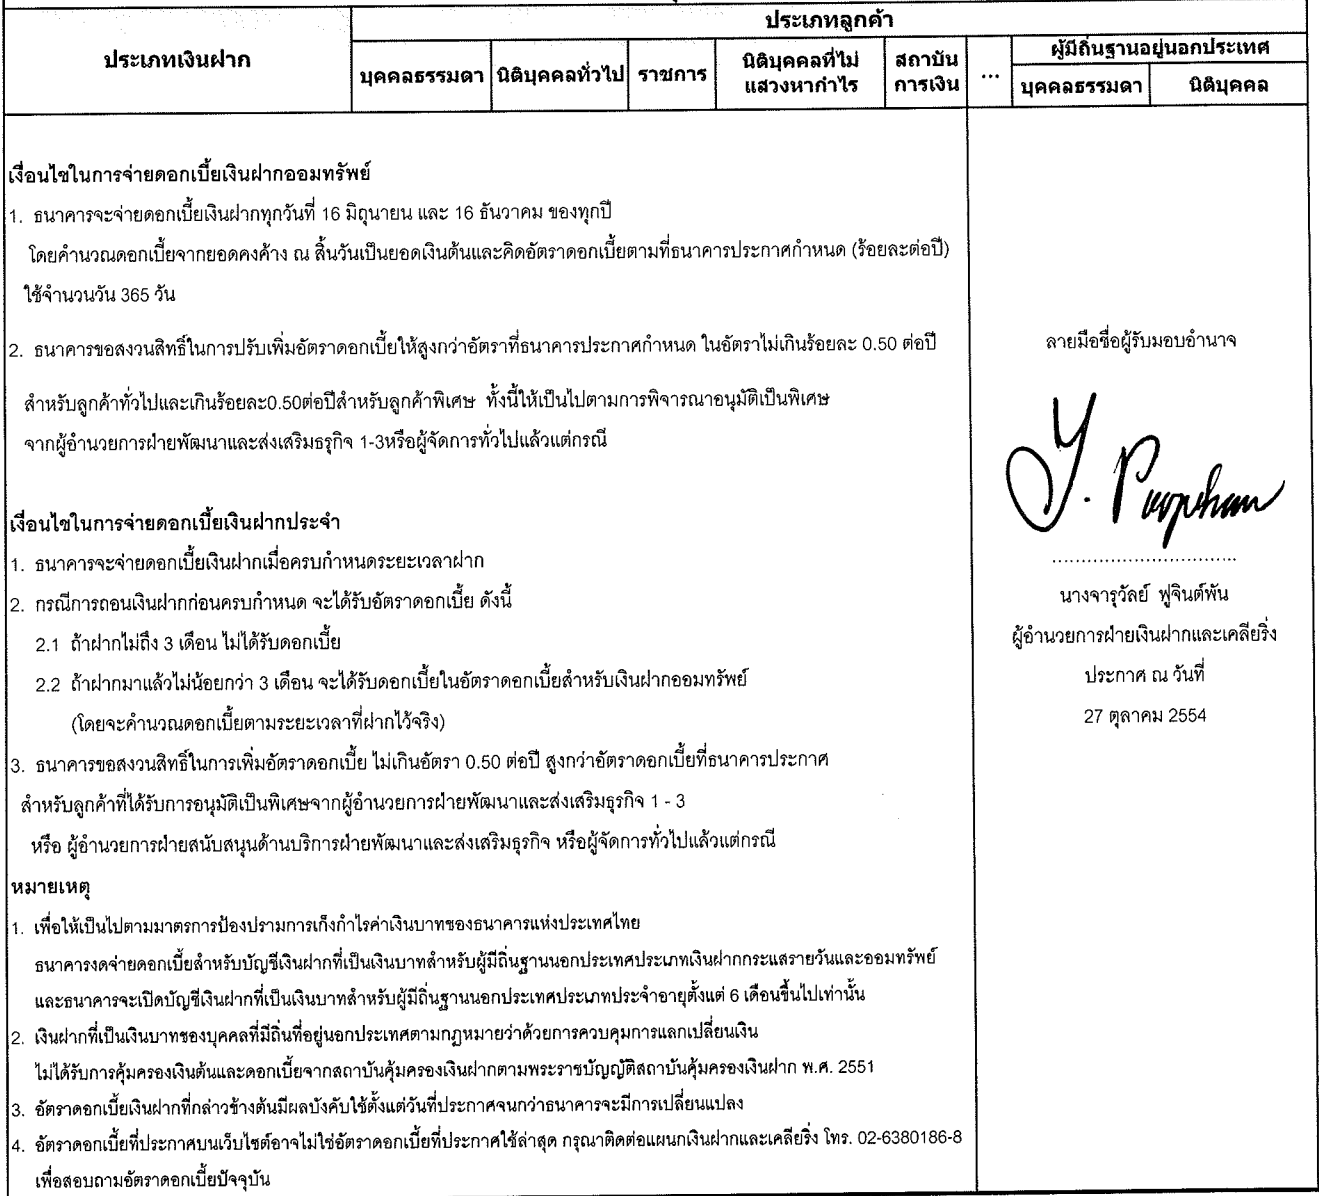 ประเภทลูกค้า
ประเภทเงินฝาก
บุคคลธรรมดา นิติบุคคลทั่วไป ราชการ นิติบุคคลที่ไม่แสวงหากำไร สถาบันการเงิน ... ผู้มีถิ่นฐานอยู่นอกประเทศ
บุคคลธรรมดา นิติบุคคล
เงื่อนไขในการจ่ายดอกเบี้ยเงินฝากออมทรัพย์
1. ธนาคารจะจ่ายดอกเบี้ยเงินฝากทุกวันที่ 16 มิถุนายน และ 16 ธันวาคม ของทุกปี
โดยคำนวณดอกเบี้ยจากยอดคงค้าง ณ สิ้นวันเป็นยอดเงินต้นและคิดอัตราดอกเบี้ยตามที่ธนาคารประกาศกำหนด (ร้อยละต่อปี)
ใช้จำนวนวัน 365 วัน
2. ธนาคารขอสงวนสิทธิ์ในการปรับเพิ่มอัตราดอกเบี้ยให้สูงกว่าอัตราที่ธนาคารประกาศกำหนด ในอัตราไม่เกินร้อยละ 0.50 ต่อปี
สำหรับลูกค้าทั่วไปและเกินร้อยละ0.50ต่อปีสำหรับลูกค้าพิเศษ ทั้งนี้ให้เป็นไปตามการพิจารณาอนุมัติเป็นพิเศษ
จากผู้อำนวยการฝ่ายพัฒนาและส่งเสริมธรุกิจ 1-3หรือผู้จัดการทั่วไปแล้วแต่กรณี
เงื่อนไขในการจ่ายดอกเบี้ยเงินฝากประจำ
1. ธนาคารจะจ่ายดอกเบี้ยเงินฝากเมื่อครบกำหนดระยะเวลาฝาก
2. กรณีการถอนเงินฝากก่อนครบกำหนด จะได้รับอัตราดอกเบี้ย ดังนี้
2.1 ถ้าฝากไม่ถึง 3 เดือน ไม่ได้รับดอกเบี้ย
2.2 ถ้าฝากมาแล้วไม่น้อยกว่า 3 เดือน จะได้รับดอกเบี้ยในอัตราดอกเบี้ยสำหรับเงินฝากออมทรัพย์
(โดยจะคำนวณดอกเบี้ยตามระยะเวลาที่ฝากไว้จริง)
3. ธนาคารขอสงวนสิทธิ์ในการเพิ่มอัตราดอกเบี้ย ไม่เกินอัตรา 0.50 ต่อปี สูงกว่าอัตราดอกเบี้ยที่ธนาคารประกาศ
สำหรับลูกค้าที่ได้รับการอนุมัติเป็นพิเศษจากผู้อำนวยการฝ่ายพัฒนาและส่งเสริมธุรกิจ 1 - 3
หรือ ผู้อำนวยการฝ่ายสนับสนุนด้านบริการฝ่ายพัฒนาและส่งเสริมธุรกิจ หรือผู้จัดการทั่วไปแล้วแต่กรณี
หมายเหตุ
1. เพื่อให้เป็นไปตามมาตรการป้องปรามการเก็งกำไรค่าเงินบาทของธนาคารแห่งประเทศไทย
ธนาคารงดจ่ายดอกเบี้ยสำหรับบัญชีเงินฝากที่เป็นเงินบาทสำหรับผู้มีถิ่นฐานนอกประเทศประเภทเงินฝากกระแสรายวันและออมทรัพย์
และธนาคารจะเปิดบัญชีเงินฝากที่เป็นเงินบาทสำหรับผู้มีถิ่นฐานนอกประเทศประเภทประจำอายุตั้งแต่ 6 เดือนขึ้นไปเท่านั้น
2. เงินฝากที่เป็นเงินบาทของบุคคลที่มีถิ่นที่อยู่นอกประเทศตามกฎหมายว่าด้วยการควบคุมการแลกเปลี่ยนเงิน
ไม่ได้รับการคุ้มครองเงินต้นและดอกเบี้ยจากสถาบันคุ้มครองเงินฝากตามพระราชบัญญัติสถาบันคุ้มครองเงินฝาก พ.ศ. 2551
3. อัตราดอกเบี้ยเงินฝากที่กล่าวข้างต้นมีผลบังคับใช้ตั้งแต่วันที่ประกาศจนกว่าธนาคารจะมีการเปลี่ยนแปลง
4. อัตราดอกเบี้ยที่ประกาศบนเว็บไซต์อาจไม่ใช่อัตราดอกเบี้ยที่ประกาศใช้ล่าสุด กรุณาติดต่อแผนกเงินฝากและเคลียริ่ง โทร. 02-6380186-8
เพื่อสอบถามอัตราดอกเบี้ยปัจจุบัน
ลายมือชื่อผู้รับมอบอำนาจ
นางจารุวัลย์ ฟูจินต์พัน
ผู้อำนวยการฝ่ายเงินฝากและเคลียริ่ง
ประกาศ ณ วันที่
27 ตุลาคม 2554